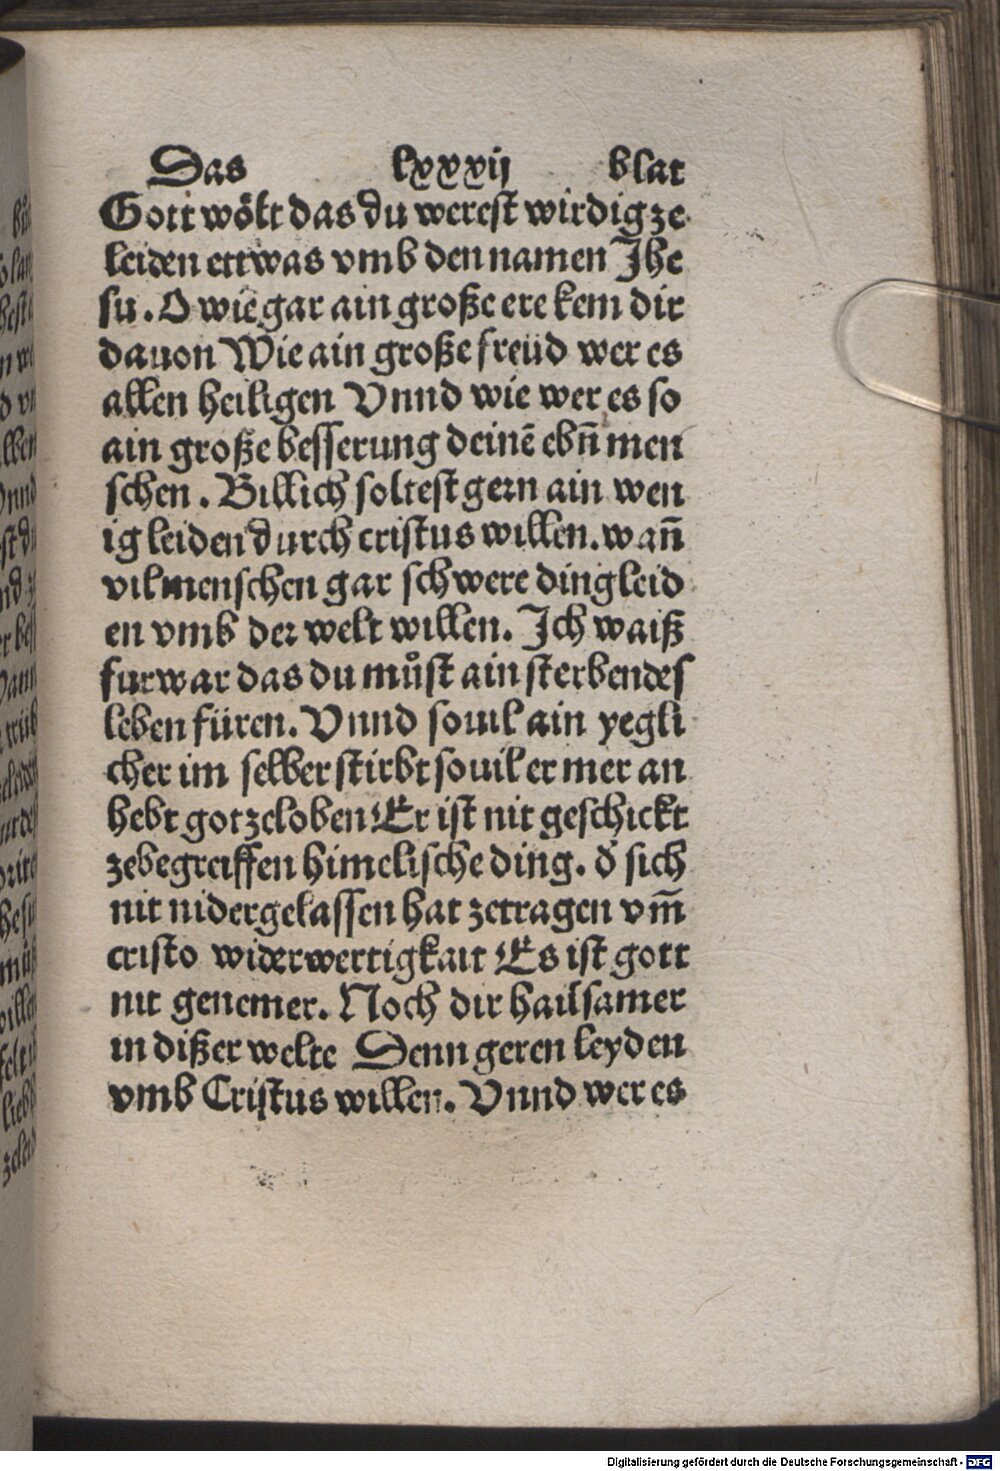 Das lxxxij blat
Gott wölt das du werest wirdig ze
leiden ettwas vmb den namen Jhe
su. O wie gar ain große ere kem dir
dauon Wie ain große freüd wer es
allen heiligen Vnnd wie wer es so
ain große besserung deinē ebn̄ men
schen. Billich soltest gern ain wen
ig leiden durch cristus willen. wan̄
vil menschen gar schwere ding leid
en vmb der welt willen. Ich waiß
furwar das du můst ain sterbendes
leben füren. Vnnd souil ain yegli
cher im selber stirbt souil er mer an
hebt got zeloben Er ist nit geschickt
zebegreiffen himelische ding. d' sich
nit nidergelassen hat zetragen vm̄
cristo widerwertigkait Es ist gott
nit genemer. Noch dir hailsamer
in dißer welte Denn geren leyden
vmb Cristus willen. Vnnd wer es
Digitalisierung gefördert durch die Deutsche Forschungsgemeinschaft - DFG